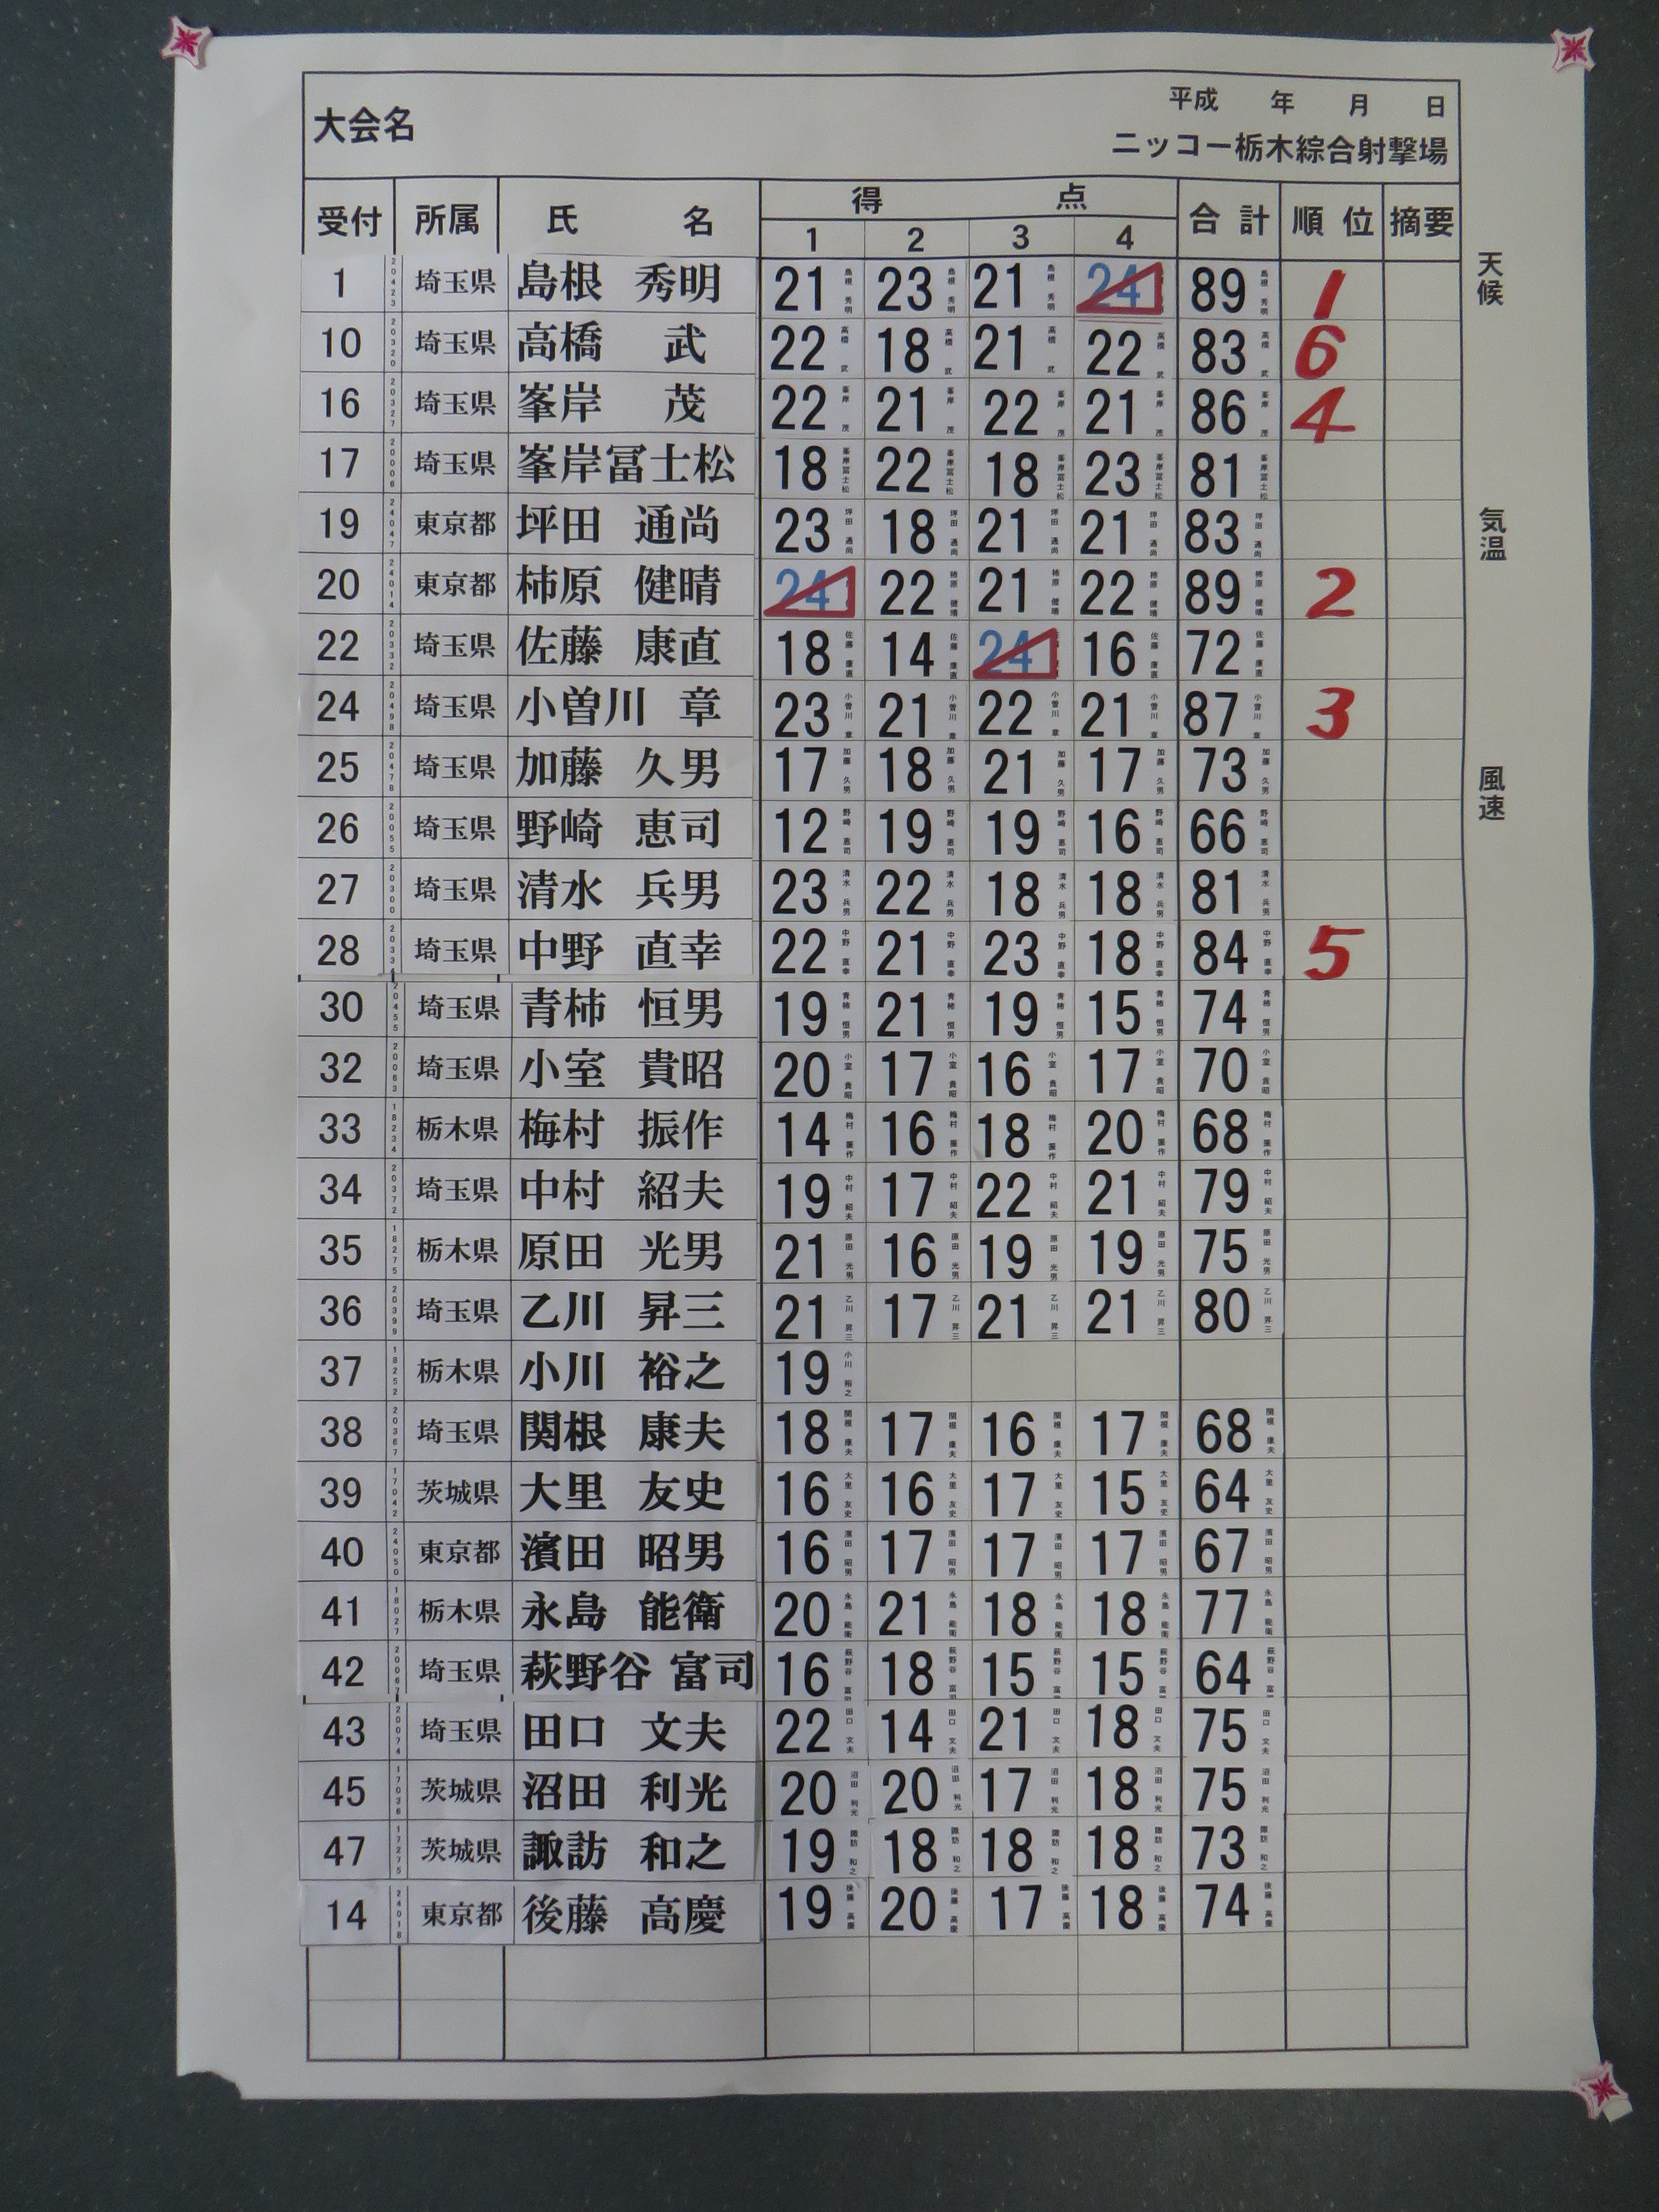 平成 年 月 日
大会名
ニッコー栃木綜合射撃場
受付 所属 氏 名 得 点 合計 順位 摘要
1 2 3 4
1 埼玉県 島根 秀明 21 23 21 24 89 1
10 埼玉県 高橋 武 22 18 21 22 83 6
16 埼玉県 峯岸 茂 22 21 22 21 86 4
17 埼玉県 峯岸冨士松 18 22 18 23 81
19 東京都 坪田 通尚 23 18 21 21 83
20 東京都 柿原 健晴 24 22 21 22 89 2
22 埼玉県 佐藤 康直 18 14 24 16 72
24 埼玉県 小曽川 章 23 21 22 21 87 3
25 埼玉県 加藤 久男 17 18 21 17 73
26 埼玉県 野崎 恵司 12 19 19 16 66
27 埼玉県 清水 兵男 23 22 18 18 81
28 埼玉県 中野 直幸 22 21 23 18 84 5
30 埼玉県 青柿 恒男 19 21 19 15 74
32 埼玉県 小室 貴昭 20 17 16 17 70
33 栃木県 梅村 振作 14 16 18 20 68
34 埼玉県 中村 紹夫 19 17 22 21 79
35 栃木県 原田 光男 21 16 19 19 75
36 埼玉県 乙川 昇三 21 17 21 21 80
37 栃木県 小川 裕之 19
38 埼玉県 関根 康夫 18 17 16 17 68
39 茨城県 大里 友史 16 16 17 15 64
40 東京都 濱田 昭男 16 17 17 17 67
41 栃木県 永島 能衛 20 21 18 18 77
42 埼玉県 萩野谷 富司 16 18 15 15 64
43 埼玉県 田口 文夫 22 14 21 18 75
45 茨城県 沼田 利光 20 20 17 18 75
47 茨城県 諏訪 和之 19 18 18 18 73
14 東京都 後藤 高慶 19 20 17 18 74
天候
気温
風速